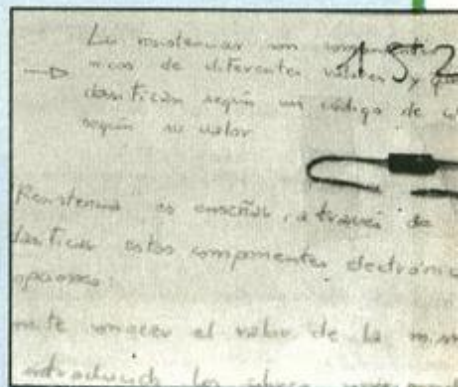 Las resistencias son componentes
nicos de diferentes valores, y
clasifican según un código de
según su valor
152
Resistencia es enseñar, a través de
clasificar estos componentes electrónic
opciones:
mite conocer el valor de la mism
introduciendo los